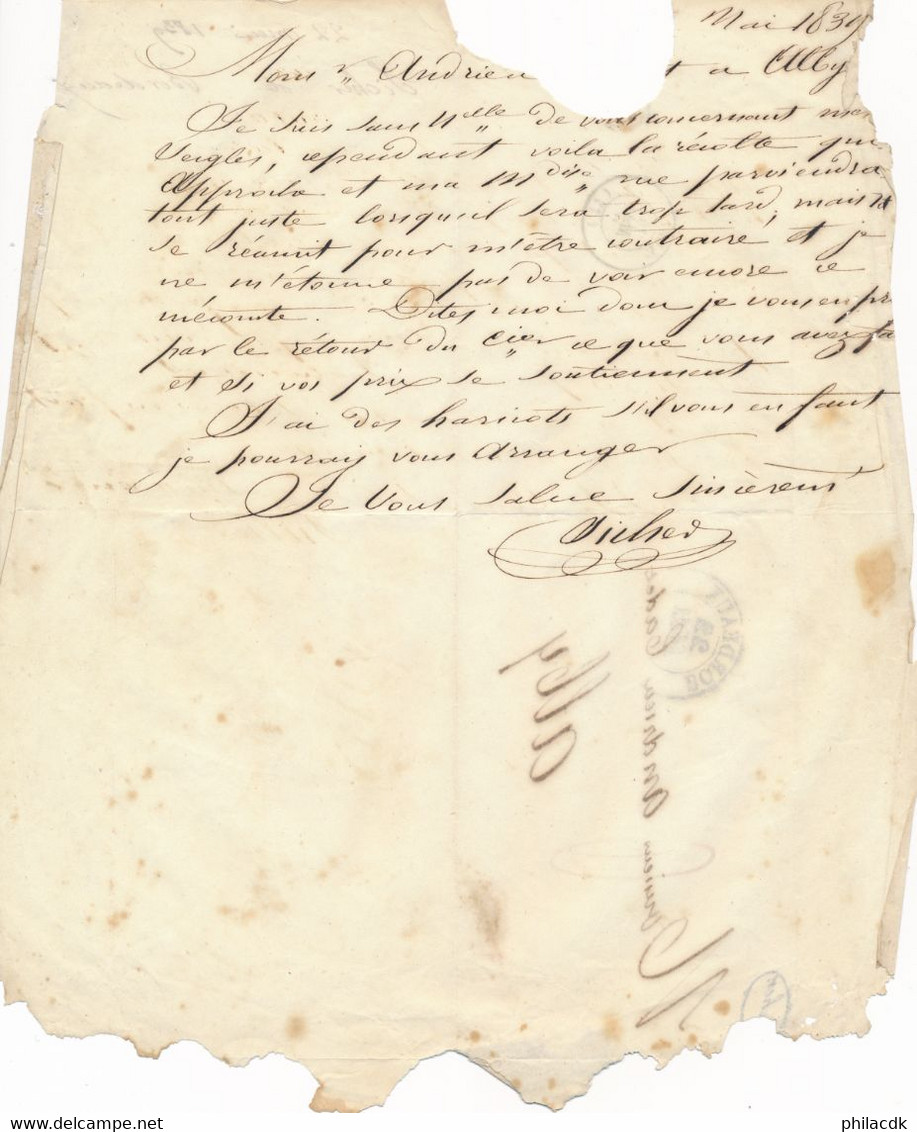 Mai 1839
Mons r Andrieu a Alby
Je suis sans Nelle de vous concernant mes
Seigles, cependant voila la récolte qui
approche et ma Mdise me parviendra
tout juste lorsqueil sera trop tard, mais
se réunit pour m'être contraire et je
ne m'étonne pas de voir encore ce
mécomte. Dites moi donc je vous en pri
par le rétour du Cier ce que vous avez fa
et si vos prix se soutiennent
J'ai des haricots s'il vous en faut
je pourrais vous arranger
Je vous salue sincèremt
BORDEAUX
22
Monsieur Andrieu Cadet
Alby
philacdk